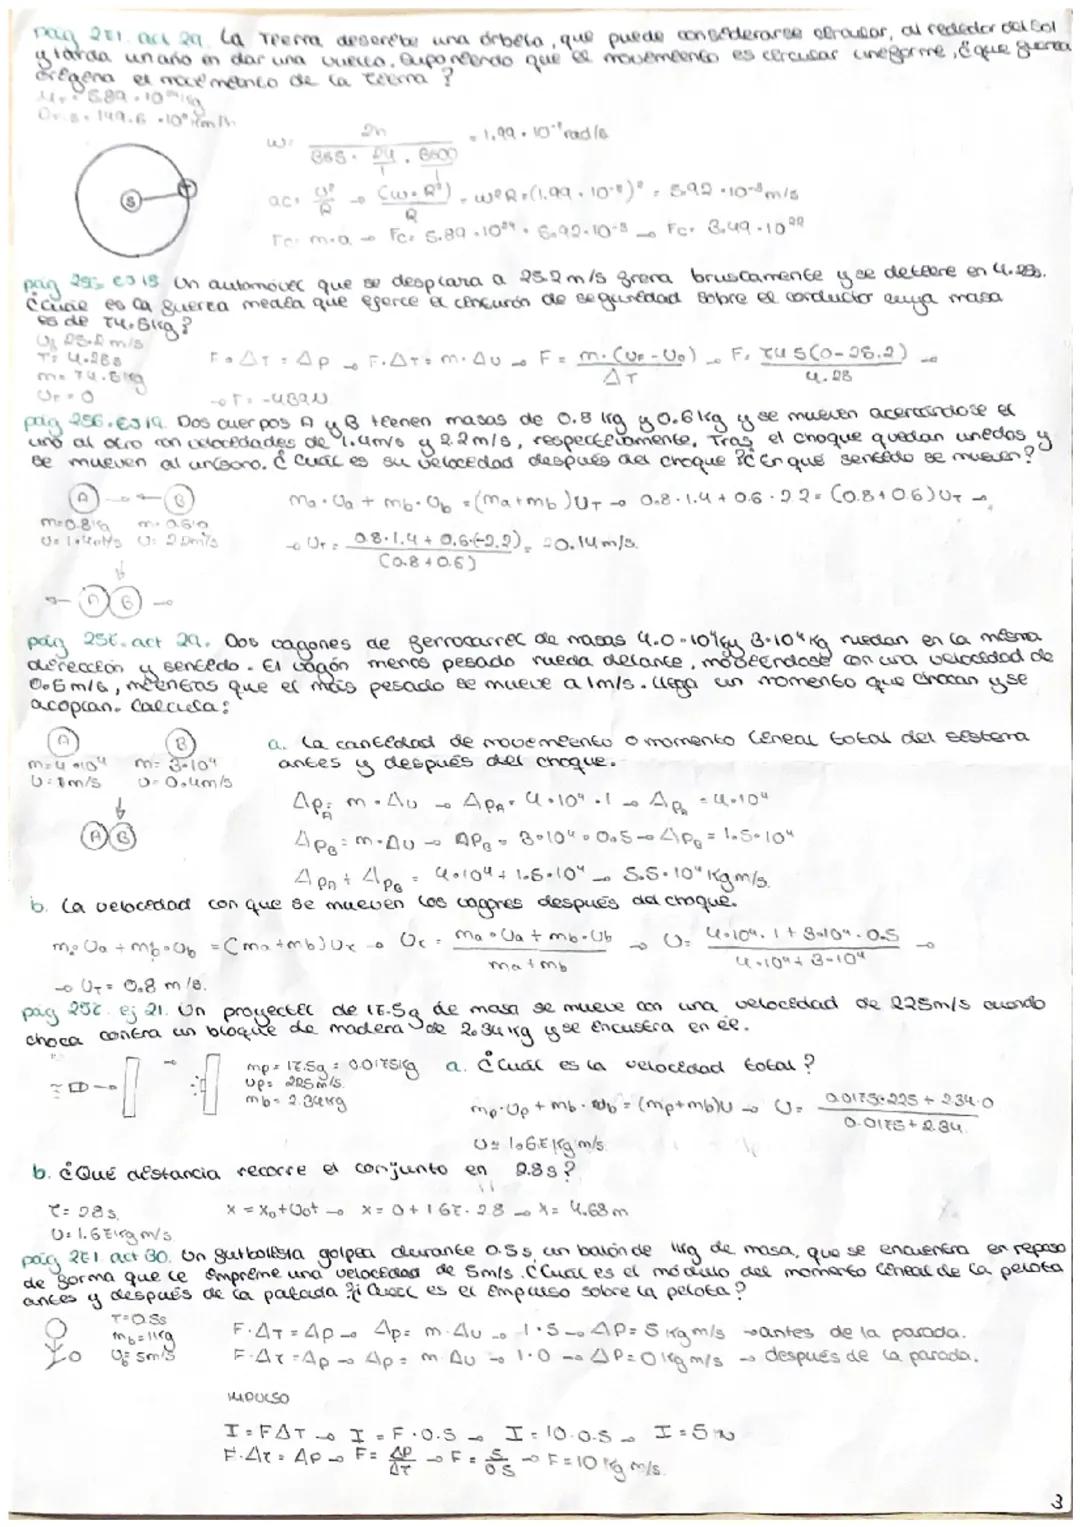 pág 271. act 29. La Tierra describe una órbita, que puede considerarse circular, al rededor del Sol
y tarda un año en dar una vuelta. Suponiendo que el movimiento es circular uniforme, ¿que fuerza
origina el movimiento de la tierra?
ω = 2π / 365 · 24/1 · 3600/1 = 1,99 · 10⁻⁷ rad/s
S T
ac = v²/R → (ω·R²)/R = ω²R = (1.99 · 10⁻⁷)² = 5,92 · 10⁻³ m/s
Fc = m·a → Fc = 5.89 · 10²⁴ · 5.92·10⁻³ → Fc = 3.49 · 10²²
pág 255 ej 18 Un automóvil que se desplaza a 25.2 m/s frena bruscamente y se detiene en 4.28s.
¿Cuál es la fuerza media que ejerce el cinturón de seguridad sobre el conductor cuya masa
es de 74.5kg?
V₀ 25.2 m/s
T = 4.28s
m = 74.5kg
VF = 0
F · ΔT = Δp → F·ΔT = m·Δv → F = m·(VF - V0)/ΔT → F = 74.5(0-25.2)/4.28 →
→ F = -439N
pág 256. ej 19. Dos cuerpos A y B tienen masas de 0.8 kg y 0.6 kg y se mueven acercándose el
uno al otro con velocidades de 1.4m/s y 2.2m/s, respectivamente. Tras el choque quedan unidos y
se mueven al unísono. ¿Cuál es su velocidad después del choque? ¿En qué sentido se mueven?
A B
m=0.8kg m=0.6kg
V=1.4m/s V=2.2m/s
A B
ma · Va + mb · Vb = (ma+mb)VT → 0.8·1.4+0.6·2.2 = (0.8+0.6)VT →
→ VT = 0.8·1.4 + 0.6·(-2.2) / (0.8+0.6) = -0.14m/s.
pág 257. act 20. Dos vagones de ferrocarril de masas 4.0·10⁴kg y 3·10⁴ kg ruedan en la misma
dirección y sentido. El vagón menos pesado rueda delante, moviéndose con una velocidad de
0.5m/s, mientras que el más pesado se mueve a 1m/s. Llega un momento que chocan y se
acoplan. Calcula:
A B
m=4·10⁴ m=3·10⁴
V=1m/s V=0.4m/s
A B
a. La cantidad de movimiento o momento lineal total del sistema
antes y después del choque.
ΔpA = m·Δv → ΔpA = 4·10⁴·1 → ΔpA = 4·10⁴
ΔpB = m·Δv → ΔpB = 3·10⁴·0.5 → ΔpB = 1.5·10⁴
ΔpA + ΔpB = 4·10⁴ + 1.5·10⁴ → 5.5·10⁴ kg m/s.
b. La velocidad con que se mueven los vagones después del choque.
ma·Va + mb·Vb = (ma+mb)Vt → Vt = ma·Va + mb·Vb / ma+mb → V = 4·10⁴·1 + 3·10⁴·0.5 / 4·10⁴ + 3·10⁴ →
→ VT = 0.8 m/s.
pág 257. ej 21. Un proyectil de 17.5g de masa se mueve con una velocidad de 225m/s cuando
choca contra un bloque de madera de 2.34 kg y se incrusta en él.
mp = 17.5g = 0.0175kg
Vp = 225m/s.
mb = 2.34kg
a. ¿Cuál es la velocidad total?
mp·Vp + mb·Vb = (mp+mb)V → V = 0.0175·225 + 2.34·0 / 0.0175+2.34.
V = 1.67 kg m/s.
b. ¿Qué distancia recorre el conjunto en 2.8s?
T = 28s.
V = 1.67 kg m/s
X = X₀ + V₀t → X = 0 + 1 67 · 2.8 → X = 4.68 m
pág 271. act 30. Un futbolista golpea durante 0.5s, un balón de 1kg de masa, que se encuentra en reposo
de forma que le imprime una velocidad de 5m/s. ¿Cuál es el módulo del momento lineal de la pelota
antes y después de la patada? ¿Cuál es el impulso sobre la pelota?
T=0.5s
mb=1kg
V₀ 5m/s
F·ΔT = Δp → Δp = m·Δv → 1·5 → ΔP = 5 kg m/s → antes de la parada.
F·ΔT = Δp → Δp = m·Δv → 1·0 → ΔP = 0 kg m/s → después de la parada.
IMPULSO
I = FΔT → I = F·0.5 → I = 10·0.5 → I = 5 N
F·ΔT = Δp → F = Δp/ΔT → F = 5/0.5 → F = 10 kg m/s.
3